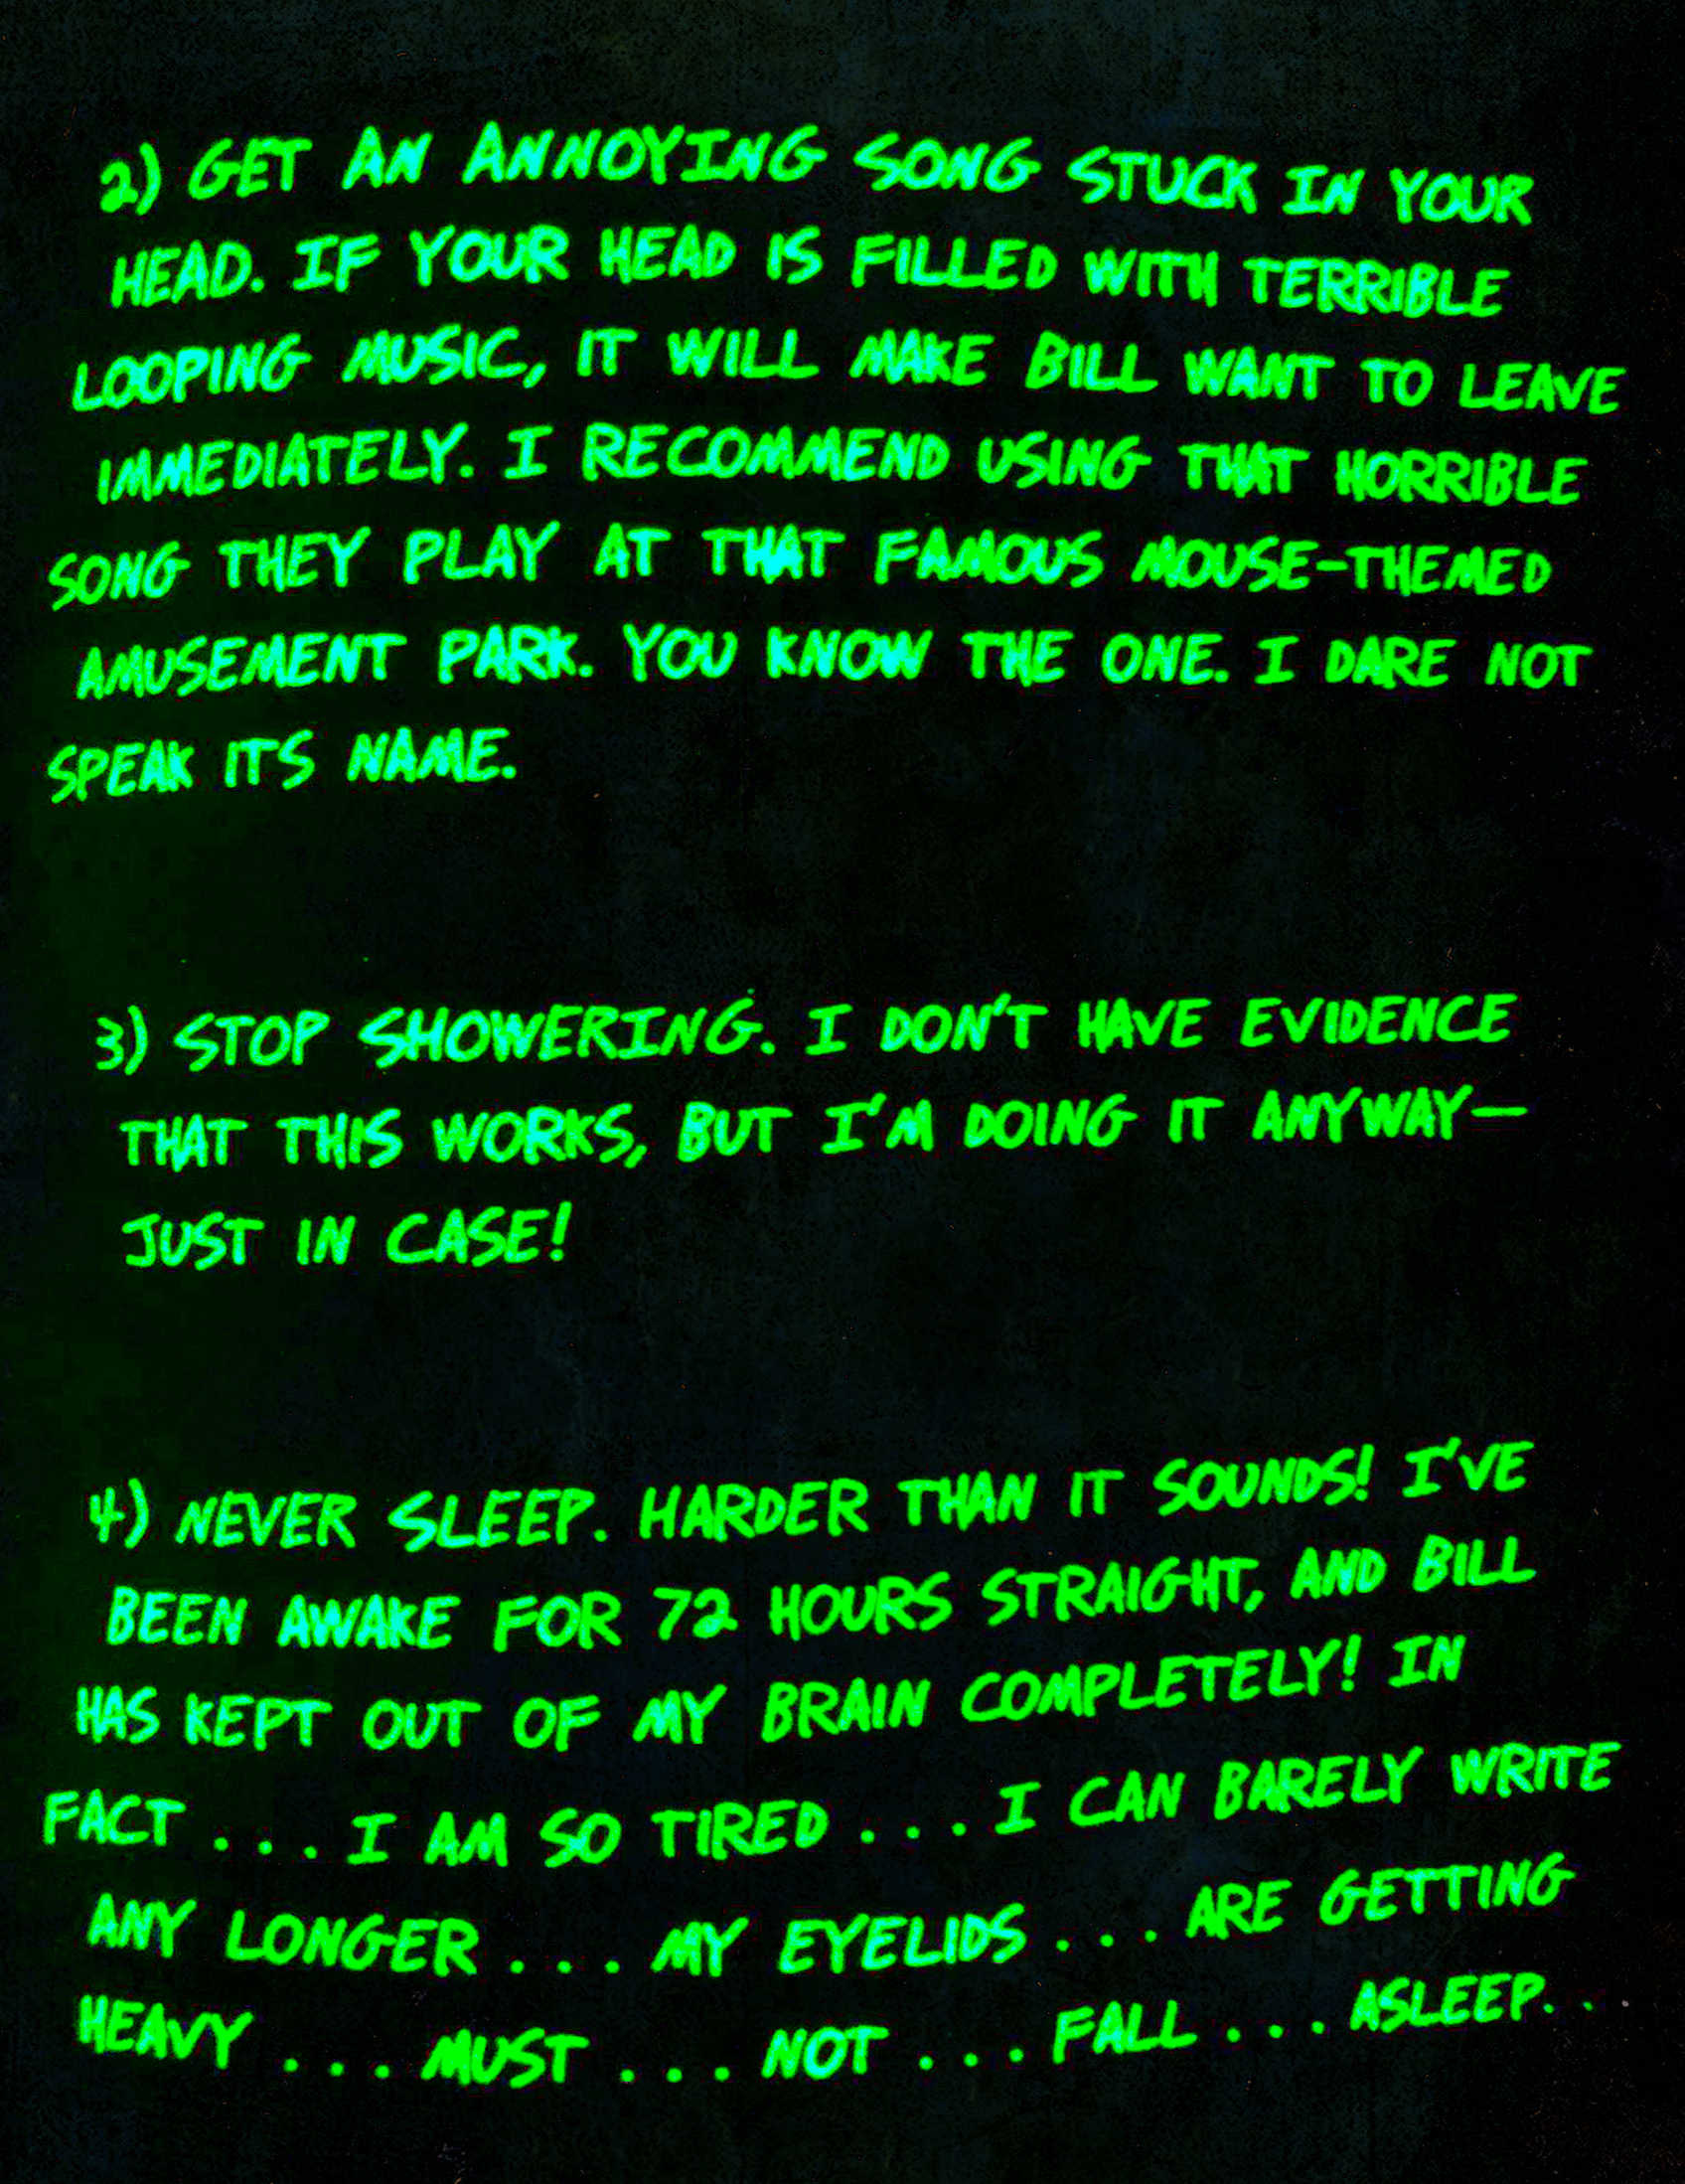 2) GET AN ANNOYING SONG STUCK IN YOUR
HEAD. IF YOUR HEAD IS FILLED WITH TERRIBLE
LOOPING MUSIC, IT WILL MAKE BILL WANT TO LEAVE
IMMEDIATELY. I RECOMMEND USING THAT HORRIBLE
SONG THEY PLAY AT THAT FAMOUS MOUSE-THEMED
AMUSEMENT PARK. YOU KNOW THE ONE. I DARE NOT
SPEAK ITS NAME.
3) STOP SHOWERING. I DON'T HAVE EVIDENCE
THAT THIS WORKS, BUT I'M DOING IT ANYWAY—
JUST IN CASE!
4) NEVER SLEEP. HARDER THAN IT SOUNDS! I'VE
BEEN AWAKE FOR 72 HOURS STRAIGHT, AND BILL
HAS KEPT OUT OF MY BRAIN COMPLETELY! IN
FACT . . . I AM SO TIRED . . . I CAN BARELY WRITE
ANY LONGER . . . MY EYELIDS . . . ARE GETTING
HEAVY . . . MUST . . . NOT . . . FALL . . . ASLEEP. . .